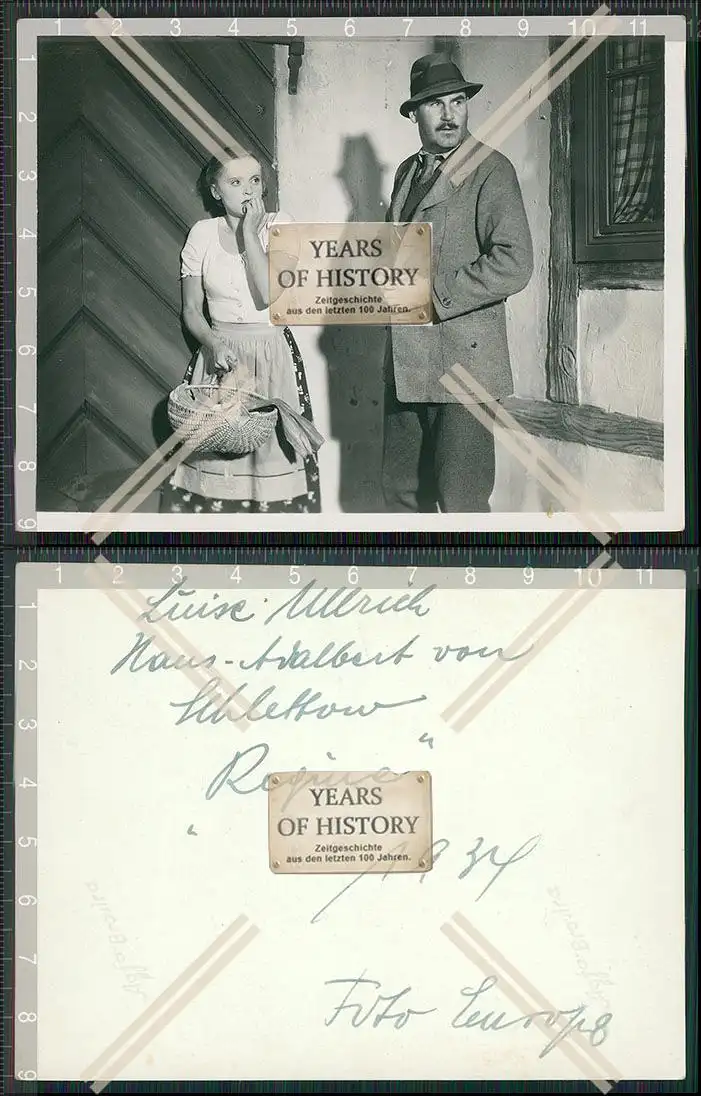 1 2 3 4 5 6 7 8 9 10 11 12
1
2
3
4
5
6
7
8
9
YEARS
OF HISTORY
Zeitgeschichte
aus den letzten 100 Jahren.
1 2 3 4 5 6 7 8 9 10 11
Luise Ullrich
Hans-Adalbert von
Schlettow
"Regine"
YEARS
OF HISTORY
Zeitgeschichte
aus den letzten 100 Jahren.
1934
Agfa-Brovira
Agfa-Brovira
Foto Europa
2
3
4
5
6
7
8
9